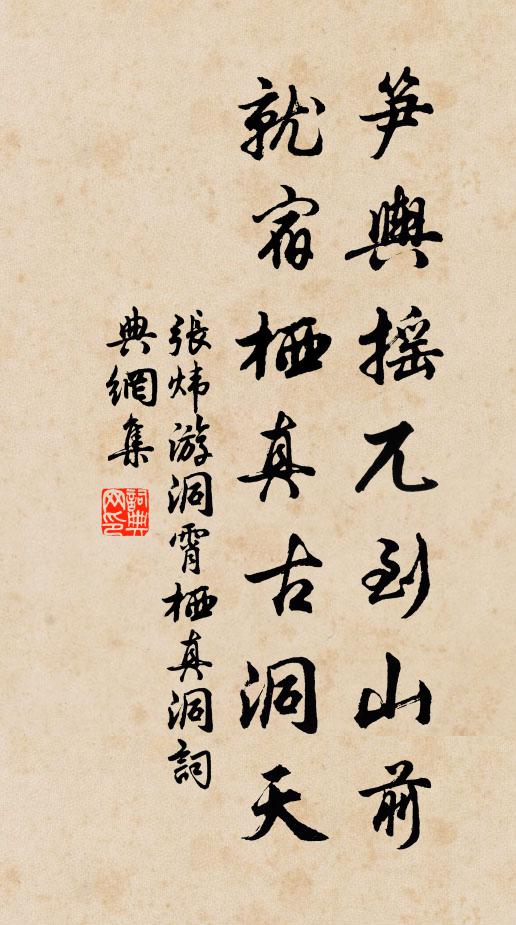 笋輿摇兀到山前
就宿栖真古洞天
張炜游洞霄栖真洞詞
典網集
詞典网印